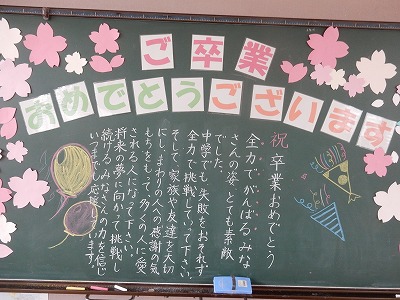 ご卒業
おめでとうございます
祝 卒業おめでとう
全力でがんばるみな
さんの姿、とても素敵
でした。
中学でも、失敗をおそれず
全力で挑戦していって下さい。
そして、家族や友達を大切
にし、まわりの人への感謝の気
もちをもって、多くの人に愛
される人になって下さい。
将来の夢に向かって挑戦し
続けるみなさんの力を信じ
いつまでも応援しています。